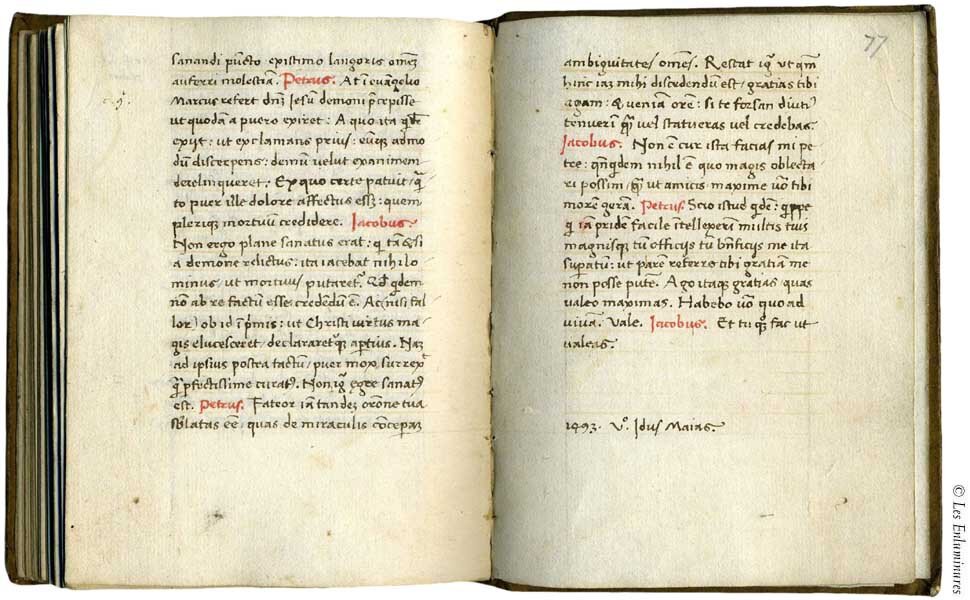 sanandi pūcto existimo langoris omēz
auferri molestiā. Petrus. At ī euāgelio
Marcus refert dnz̄ Iesū demoni p̄cepisse
ut quodā a puero exiret: A quo ita
exiyt: ut exclamans prius: eūqz admo
dū discerpens: demū velut exanimem
derelinqueret. Ex quo certe patuit,
to puer ille dolore affectus essz: quem
plerique mortuū credidere. Iacobus.
Non ergo plane sanatus erat: q tā&si
a demone relictus: ita iacebat nihilo
minus, ut mortuus putaret᷑. qdem
nō ab re factū esse credendū ē. Ac (nisi fal
lor) ob id ī p̄mis: ut Christi virtus ma
gis elucesceret, declararet᷑qz apertius. Nāz
ad ipsius postra tactū, puer mox surrex̄
q̄ pfectissime curatꝰ. Non ig egre sanatꝰ
est. Petrus. Fateor iā tandez orōne tua
sblatas eē, quas de miraculis cōceperaz
77
ambiguitates omēs. Restat ig ut qm̄
hinc iaz mihi discedendū est, gratias tibi
agam: & ueniā orē: si te forsan diutiꝰ
tenuerī q̄ vel statueras vel credebas.
Iacobus. Non ē cur ista facias mi pe
tre: qn̄qdem nihil ē quo magis oblecta
ri possim q̄ ut amicis maxime uō tibi
morē gerā. Petrus. Scio istud qdē: qippe
q iā pridē facile ītellexerī multis tuis
magnisqz tū officiys tū bn̄ficiys me ita
supatū: ut parē referre tibi gratiā me
non posse putē. Ago itaqz gratias quas
valeo maximas. Habebo uō quoad
vivā. Vale. Iacobus. Et tu qz fac ut
valeas.
1493. Vo. Idus Maias.
© Les Enluminures